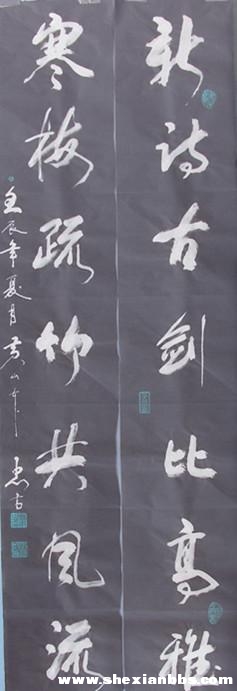 新诗古剑比高雅
寒梅疏竹共风流
壬辰年夏月黄山
古
www.shexianbbs.com